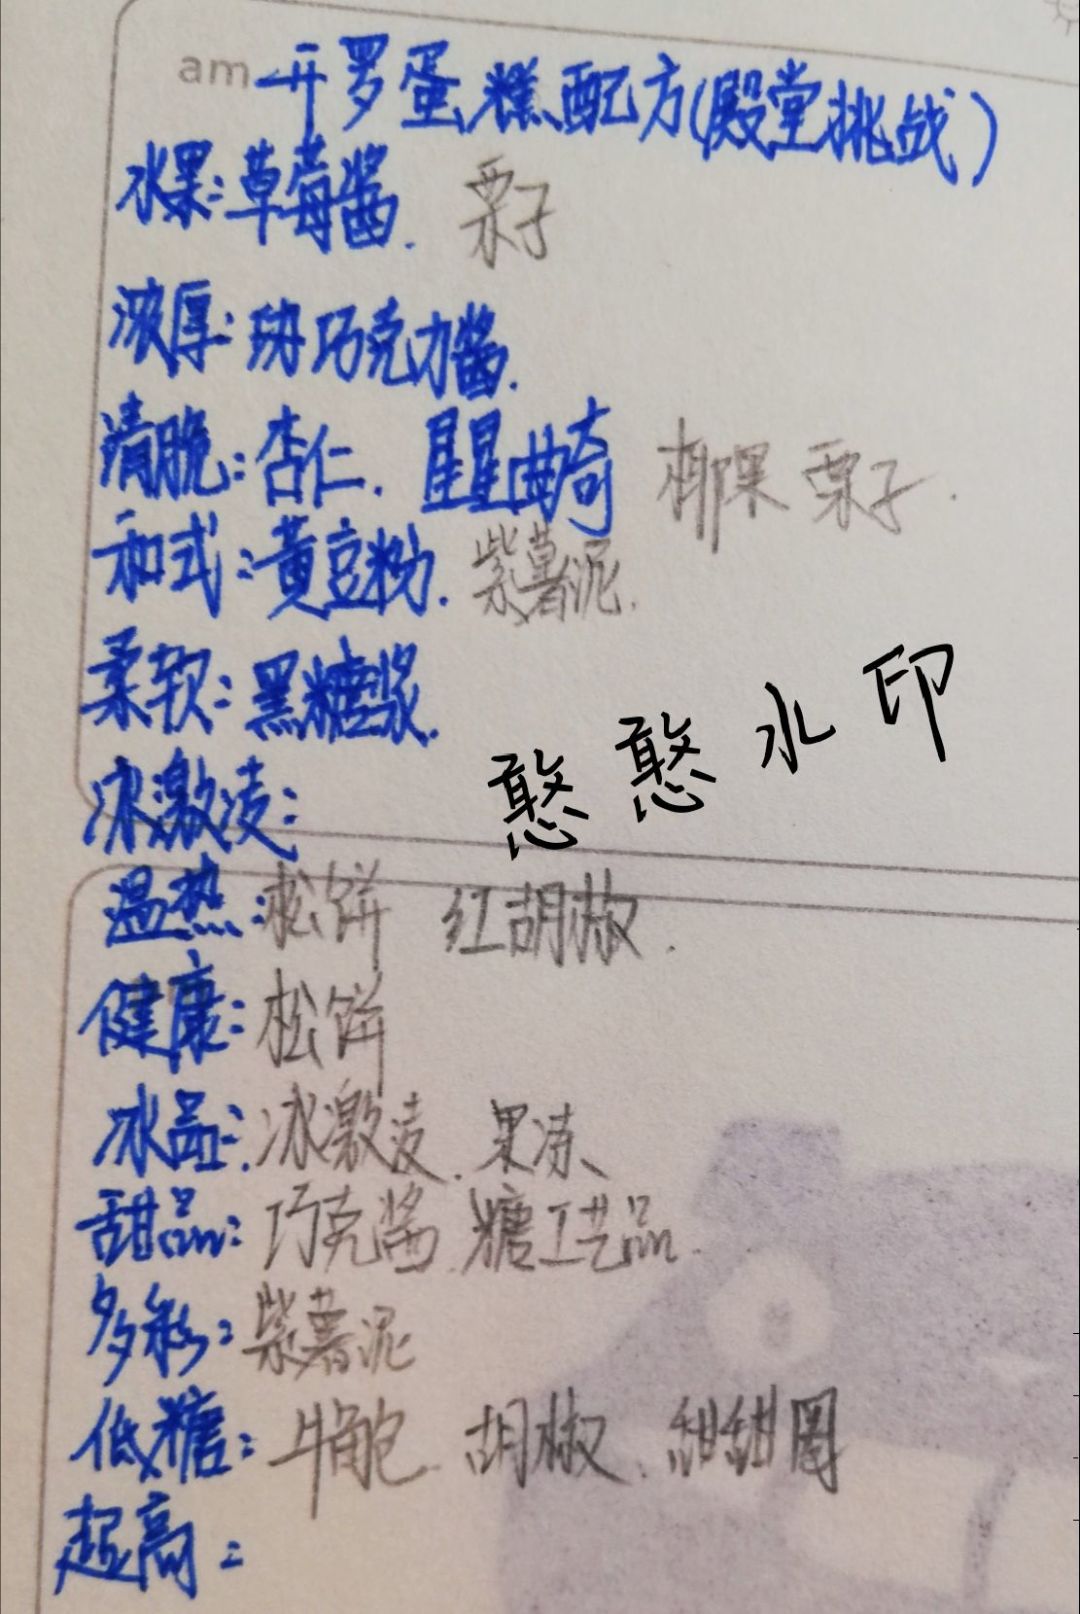 am 开罗蛋糕配方(殿堂挑战)
水果:草莓酱. 栗子
浓厚: 巧克力酱.
清脆:杏仁. 星星曲奇 椰果 栗子.
和式:黄豆粉. 紫薯泥.
柔软:黑糖浆.
冰激凌:
憨憨水印
温热:松饼 红胡椒.
健康:松饼
冰品:冰激凌. 果冻、
甜品:巧克酱.糖工艺品.
多彩:紫薯泥
低糖:牛角包. 胡椒. 甜甜圈
超高: